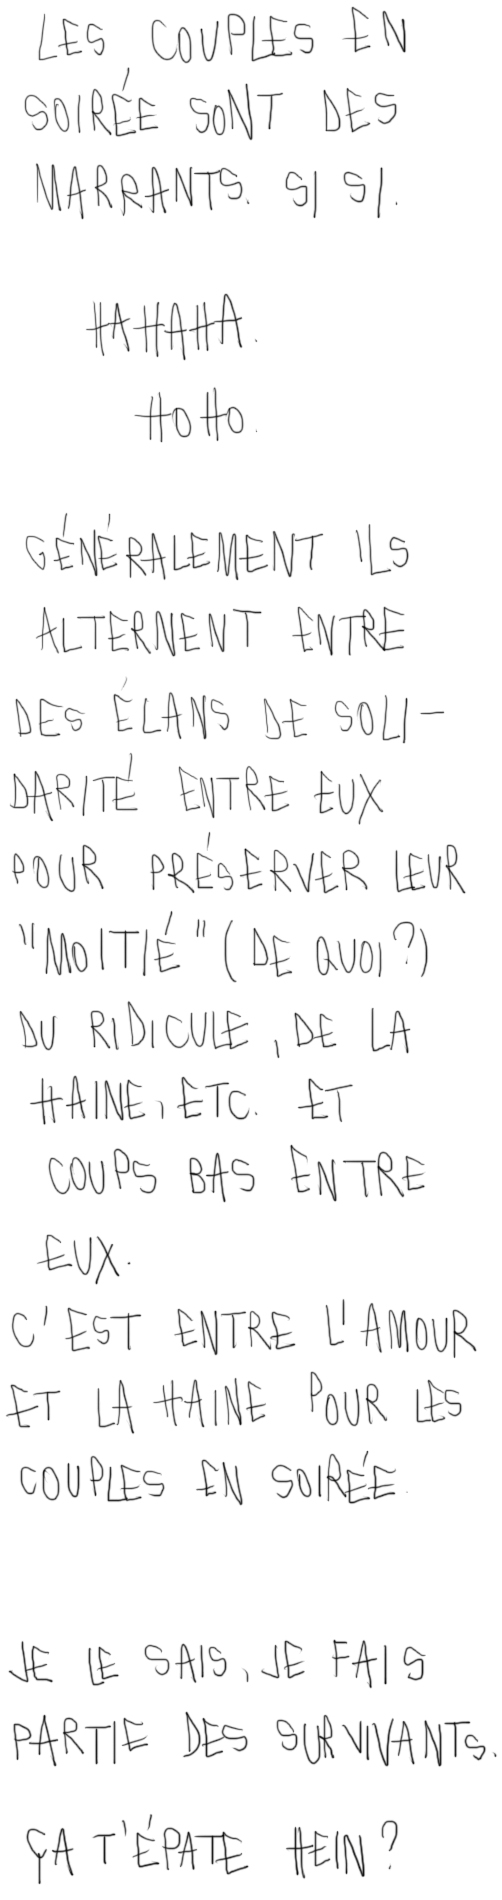 LES COUPLES EN
SOIRÉE SONT DES
MARRANTS. SI SI.
HAHAHA.
HOHO.
GÉNÉRALEMENT ILS
ALTERNENT ENTRE
DES ÉLANS DE SOLI-
DARITÉ ENTRE EUX
POUR PRÉSERVER LEUR
"MOITIÉ" (DE QUOI?)
DU RIDICULE, DE LA
HAINE, ETC. ET
COUPS BAS ENTRE
EUX.
C'EST ENTRE L'AMOUR
ET LA HAINE POUR LES
COUPLES EN SOIRÉE.
JE LE SAIS, JE FAIS
PARTIE DES SURVIVANTS.
ÇA T'ÉPATE HEIN?